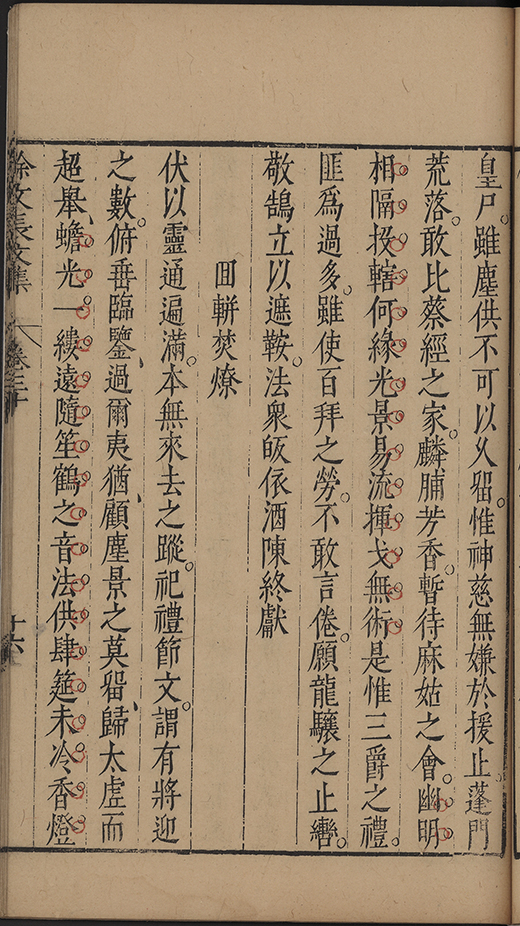 皇尸。雖塵供不可以久畱。惟神慈無嫌於援止。蓬門
荒落。敢比蔡經之家。麟脯芳香。暫待麻姑之會。幽明
相隔。投轄何緣。光景易流。揮戈無術。是惟三爵之禮。
匪為過多。雖使百拜之勞。不敢言倦。願龍驤之止轡。
敬鵠立以遮鞍。法衆皈依酒陳終獻
回軿焚燎
伏以靈通遍滿。本無來去之蹤。祀禮節文。謂有將迎
之數。俯垂臨鑒、過爾夷猶、顧塵景之莫畱、歸太虛而
超舉、蟾光一縷。遠隨笙鶴之音。法供肆筵。未冷香燈
徐文長文集
卷三十
十六